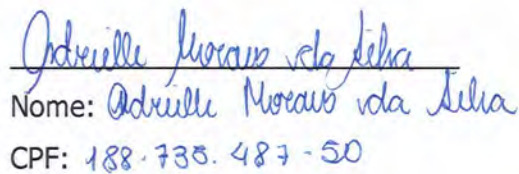 Adrielle Moraes da Silva
Nome: Adrielle Moraes da Silva
CPF: 188.735.487-50